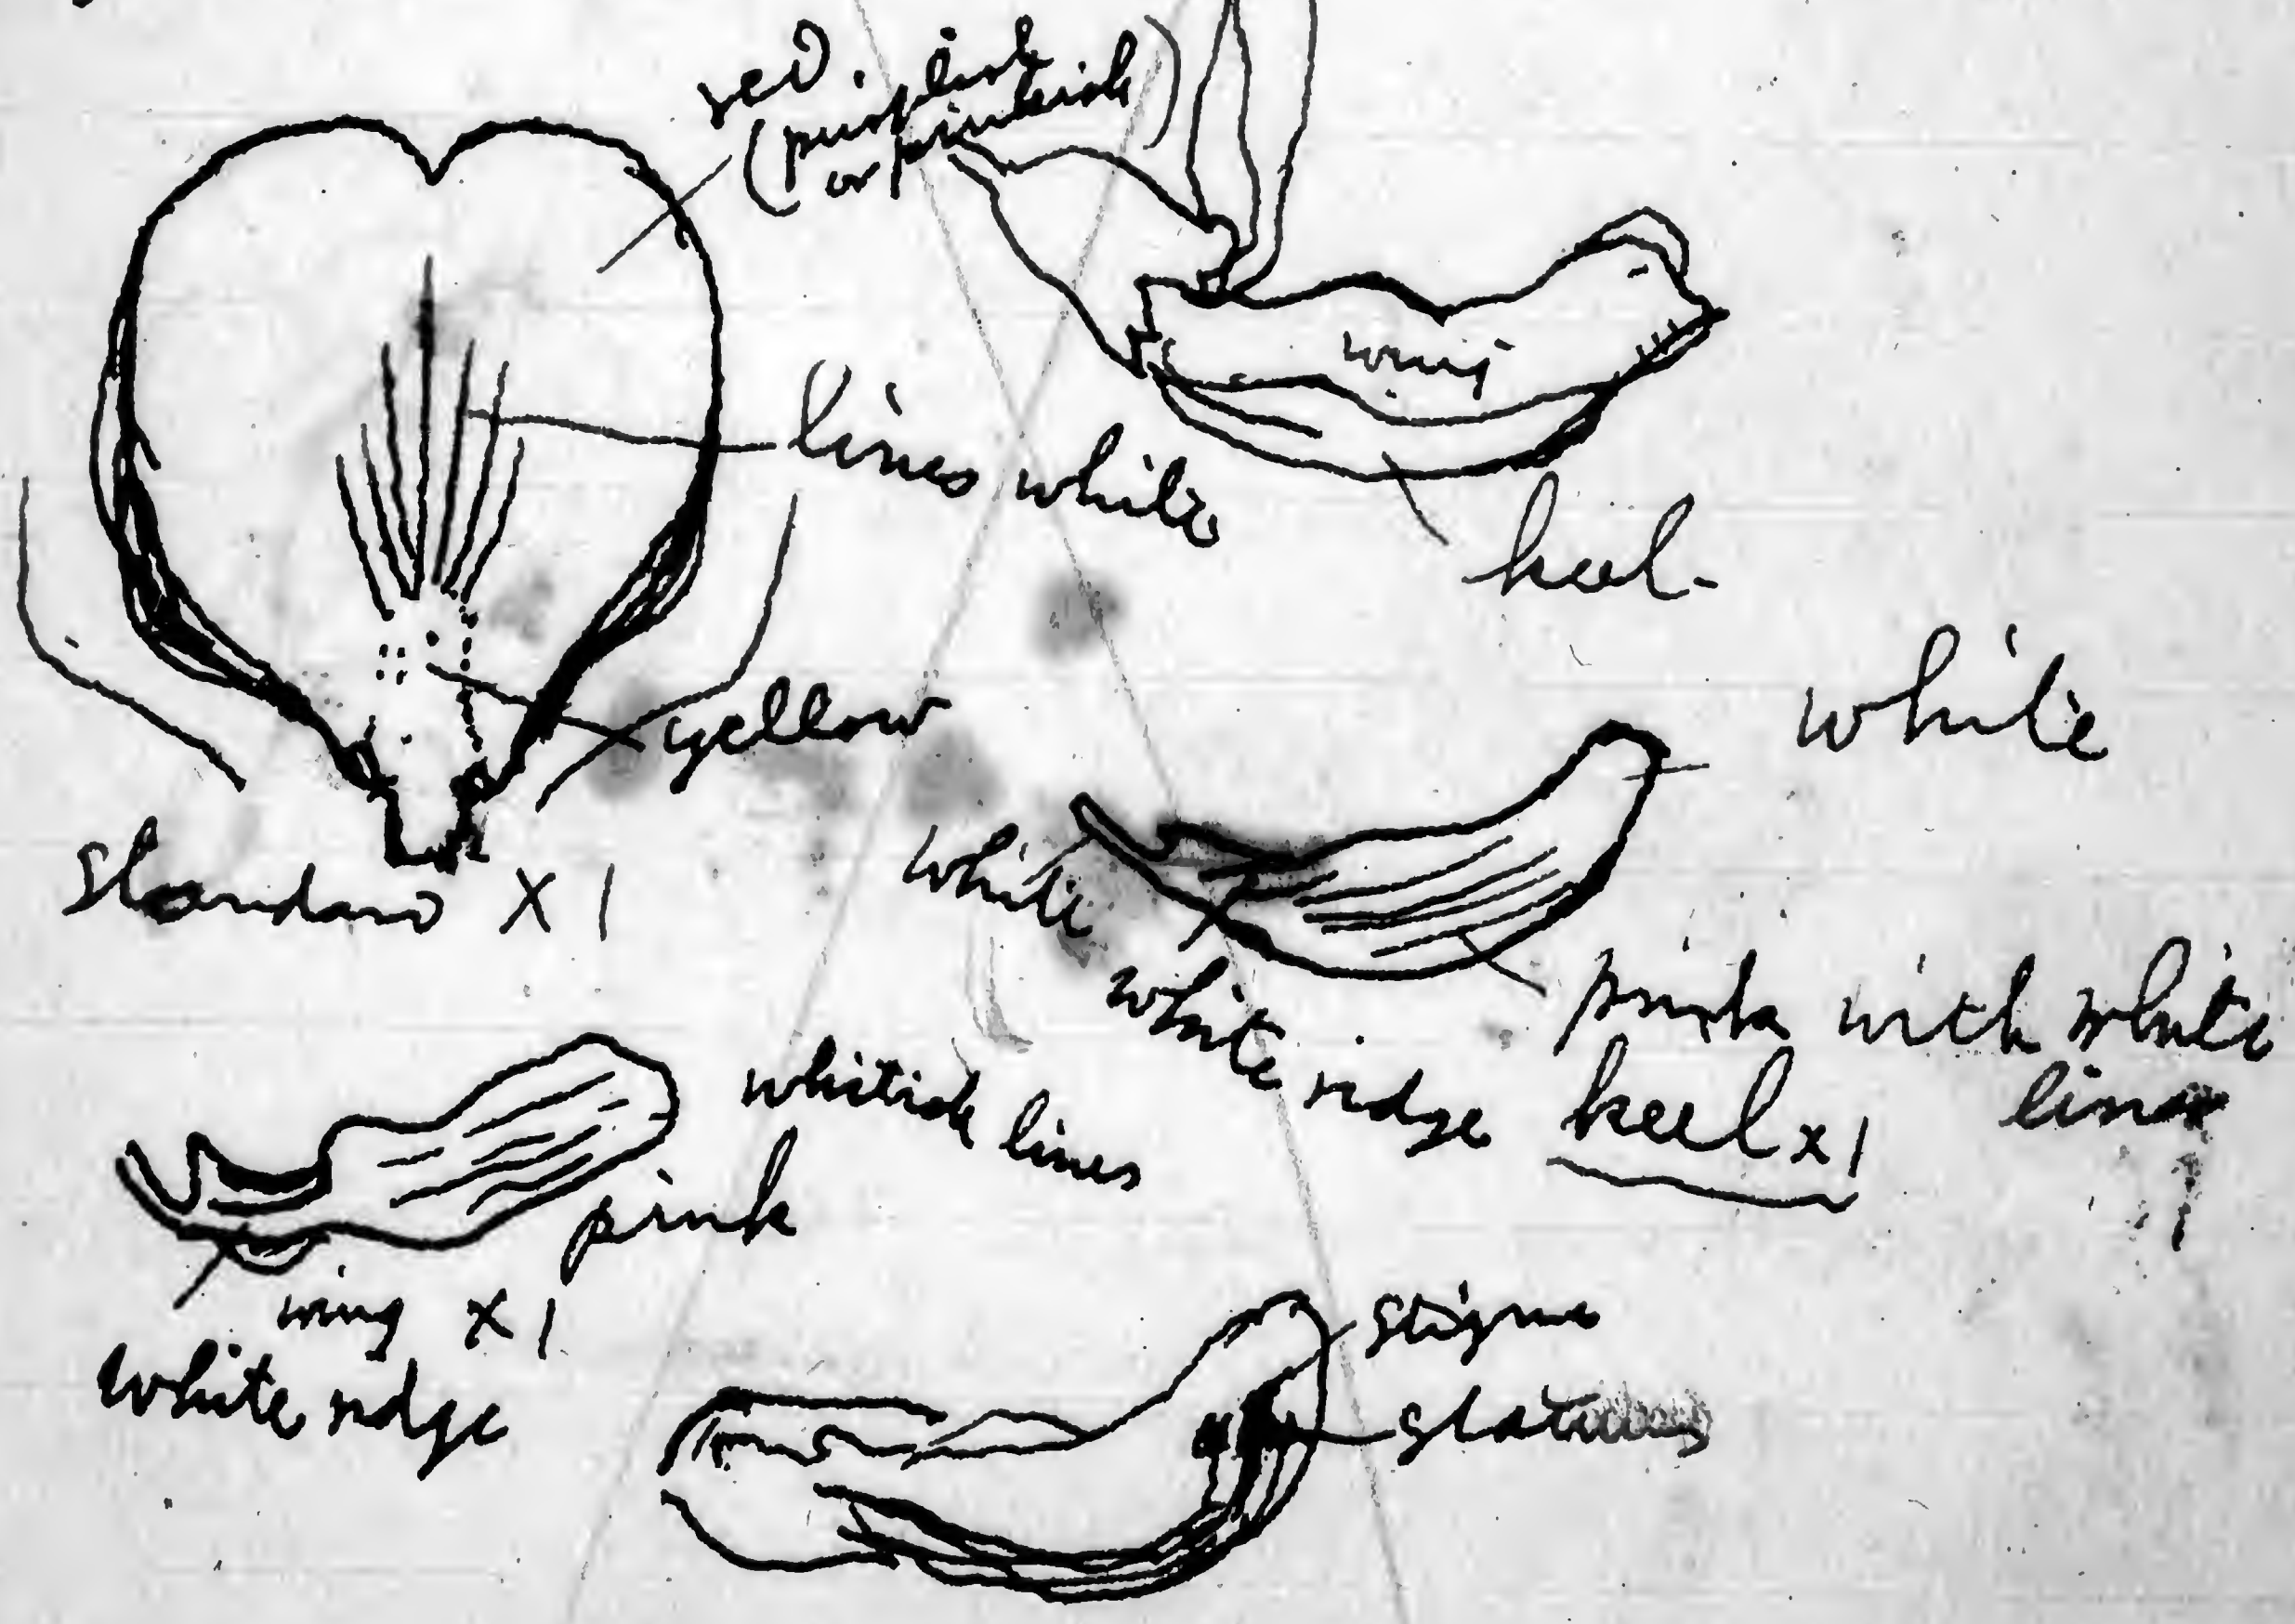 red.
(purplish
or pinkish)
wing
lines white
keel
white
yellow
standard X 1
white
white ridge
pink with white
lines
keel x 1
whitish lines
pink
wing X 1
white ridge
stigma